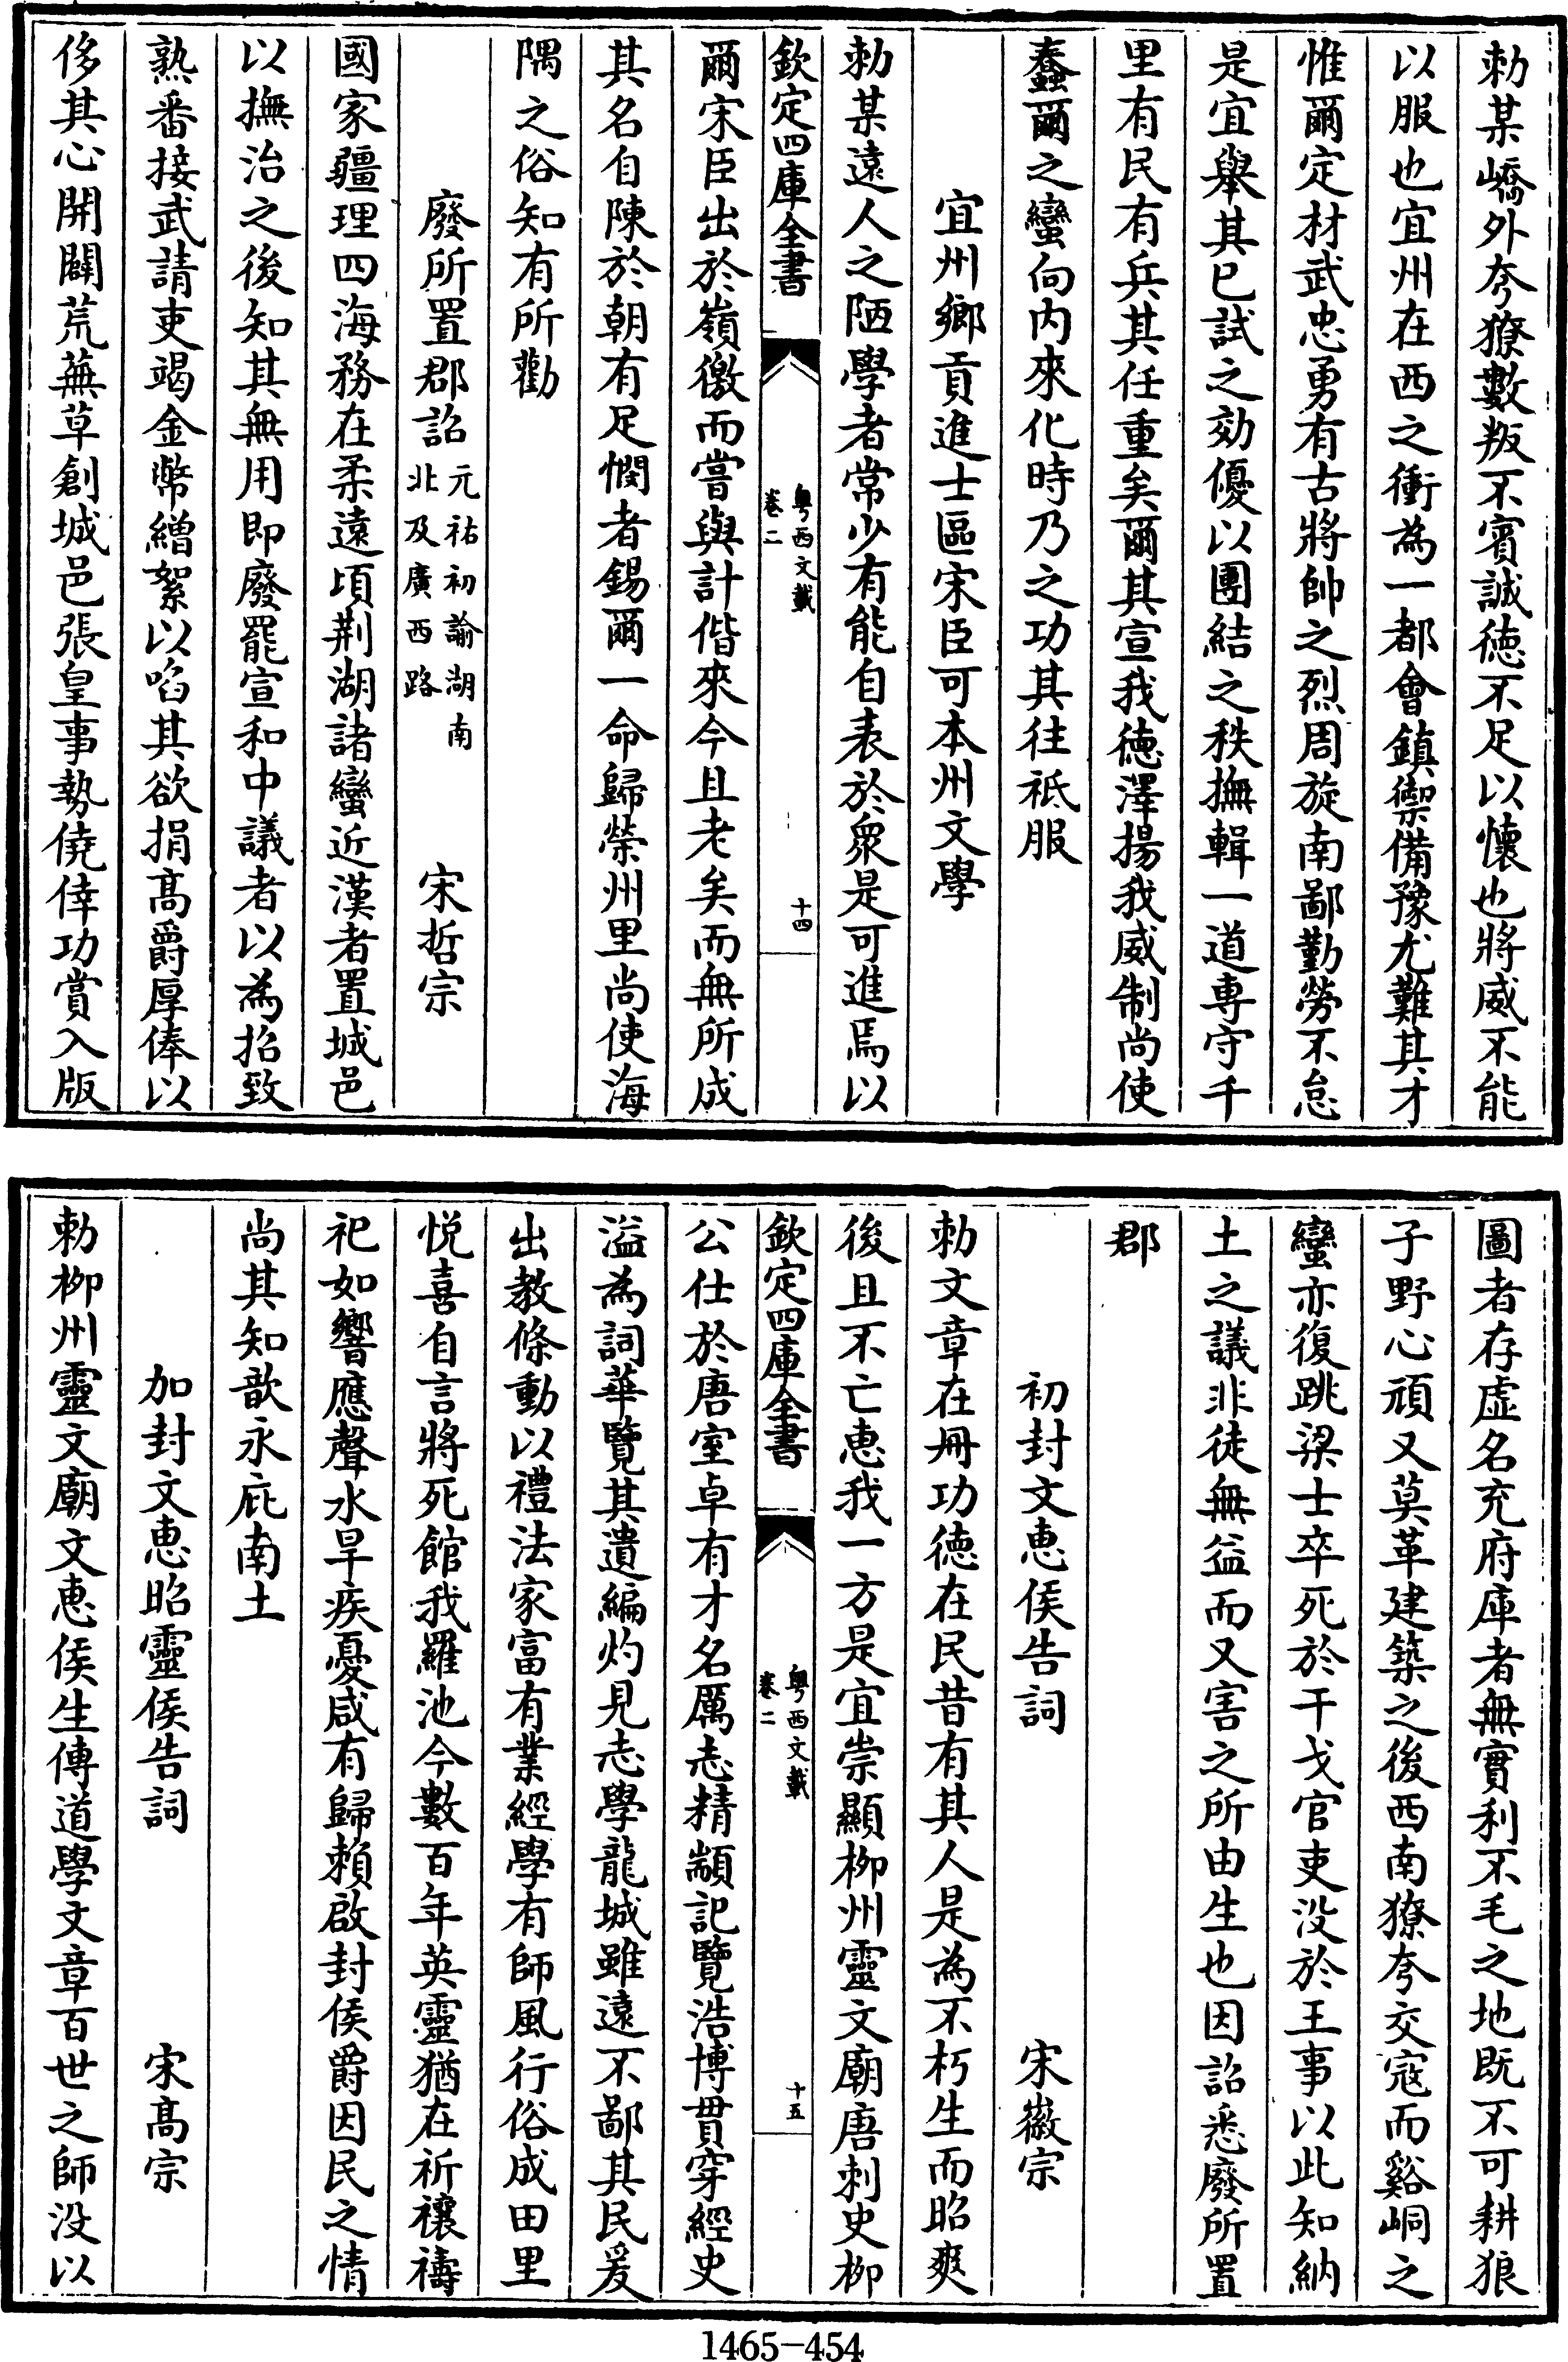 勅某嶠外夸獠數叛不賓誠徳不足以懐也將威不能
以服也宜州在西之衝為一都會鎮禦備豫尤難其才
惟爾定材武忠勇有古將帥之烈周旋南鄙勤勞不怠
是宜舉其已試之効優以團結之秩撫輯一道專守千
里有民有兵其任重矣爾其宣我徳澤揚我威制尚使
蠢爾之蠻向内來化時乃之功其往祗服
宜州鄉貢進士區宋臣可本州文學
勅某遠人之陋學者常少有能自表於衆是可進焉以
欽定四庫全書
粵西文載
卷二
十四
爾宋臣出於嶺徼而嘗與計偕來今且老矣而無所成
其名自陳於朝有足憫者錫爾一命歸榮州里尚使海
隅之俗知有所勸
廢所置郡詔 元祐初諭湖南北及廣西路 宋哲宗
國家疆理四海務在柔遠頃荆湖諸蠻近漢者置城邑
以撫治之後知其無用即廢罷宣和中議者以為招致
熟番接武請吏竭金幣繒絮以啗其欲捐髙爵厚俸以
侈其心開闢荒蕪草創城邑張皇事勢僥倖功賞入版
圖者存虛名充府庫者無實利不毛之地既不可耕狼
子野心頑又莫革建築之後西南獠夸交寇而谿峒之
蠻亦復跳梁士卒死於干戈官吏没於王事以此知納
土之議非徒無益而又害之所由生也因詔悉廢所置
郡
初封文惠侯告詞 宋徽宗
勅文章在冊功徳在民昔有其人是為不朽生而昭爽
後且不亡惠我一方是宜崇顯柳州靈文廟唐刺史柳
欽定四庫全書
粵西文載
卷二
十五
公仕於唐室卓有才名厲志精顓記覽浩博貫穿經史
溢為詞華覽其遺編灼見志學龍城雖遠不鄙其民爰
出教條動以禮法家富有業經學有師風行俗成田里
悦喜自言將死館我羅池今數百年英靈猶在祈禳禱
祀如響應聲水旱疾憂咸有歸賴啟封侯爵因民之情
尚其知歆永庇南土
加封文惠昭靈侯告詞 宋髙宗
勅柳州靈文廟文惠侯生傳道學文章百世之師没以
1465-454